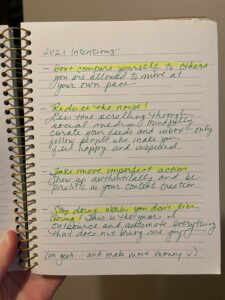 2021 Intentions
- Don't compare yourself to others
you are allowed to move at
your own pace
- Reduce the noise!
Less time scrolling through
social media. Mindfully
curate your feeds and inbox, only
follow people who make you
feel happy and inspired.
- Take more imperfect action
Show up authentically and be
prolific in your content creation
- Stop doing work you don't like
doing! This is the year I
outsource and automate everything
that does not bring me joy
(oh yeah... and make more money